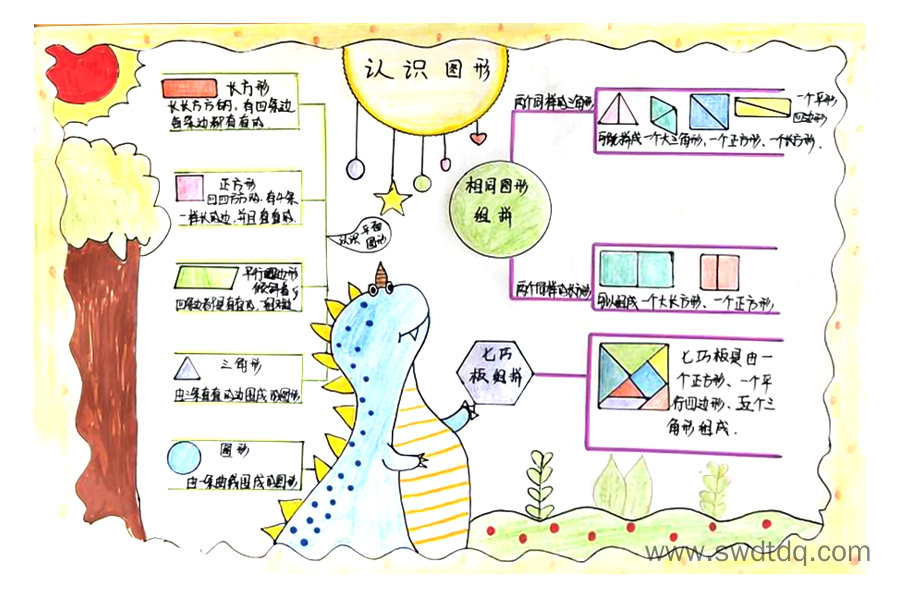 认识图形
长方形
长长方方的,有四条边
每条边都有直的
正方形
四四方方的,有4条
一样长的边,并且有直的.
认识平面
图形
平行四边形
四条边都是有直的,
三角形
由三条有直的边围成的图形
圆形
由一条曲线围成的图形
相同图形
组拼
两个同样的三角形
一个平行
四边形
可能拼成一个大三角形,一个正方形、一个长方形.
两个同样的长方形
可以组成一个大长方形、一个正方形
七巧
板组拼
七巧板是由一
个正方形、一个平
行四边形、五个三
角形组成.
www.swdtdq.com